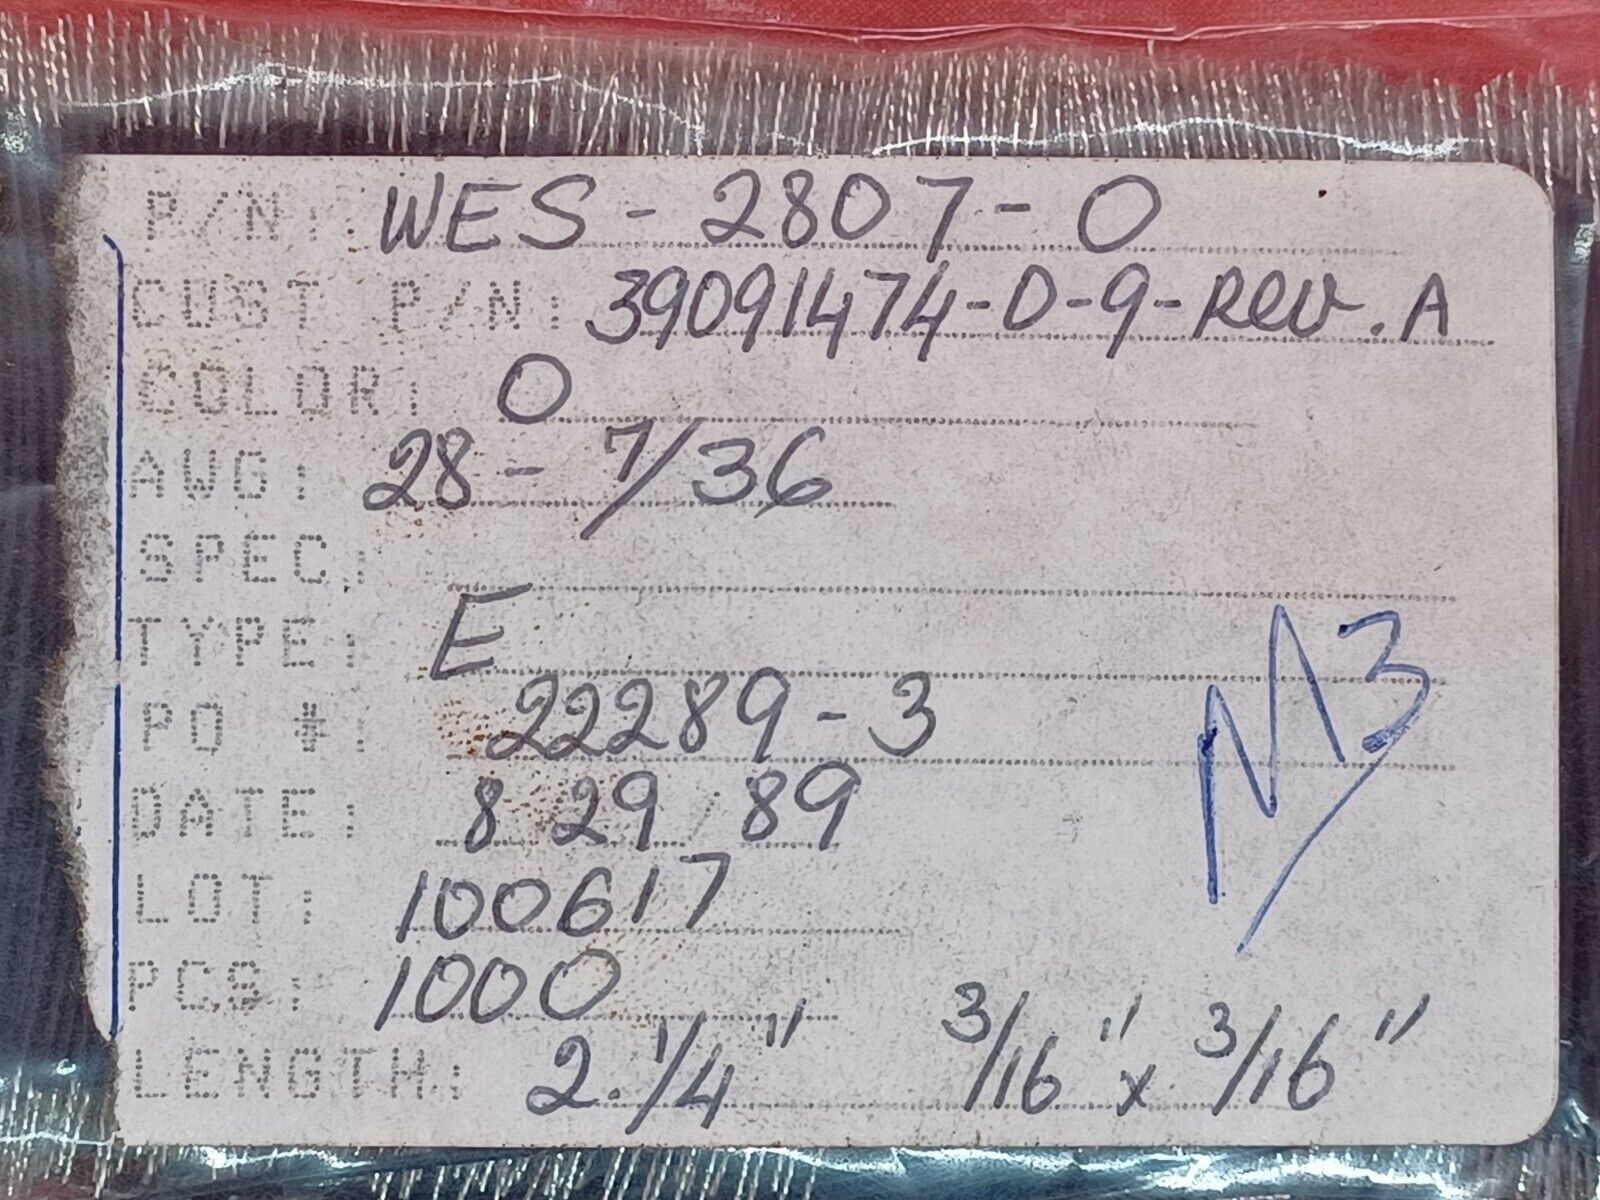 P/N: WES - 2807 - 0
CUST P/N: 39091474-0-9-Rev. A
COLOR: 0
AWG: 28 - 7/36
SPEC:
TYPE: E
PO #: 22289 - 3
DATE: 8 29 / 89
LOT: 100617
PCS: 1000
LENGTH: 2.1/4" 3/16" x 3/16"